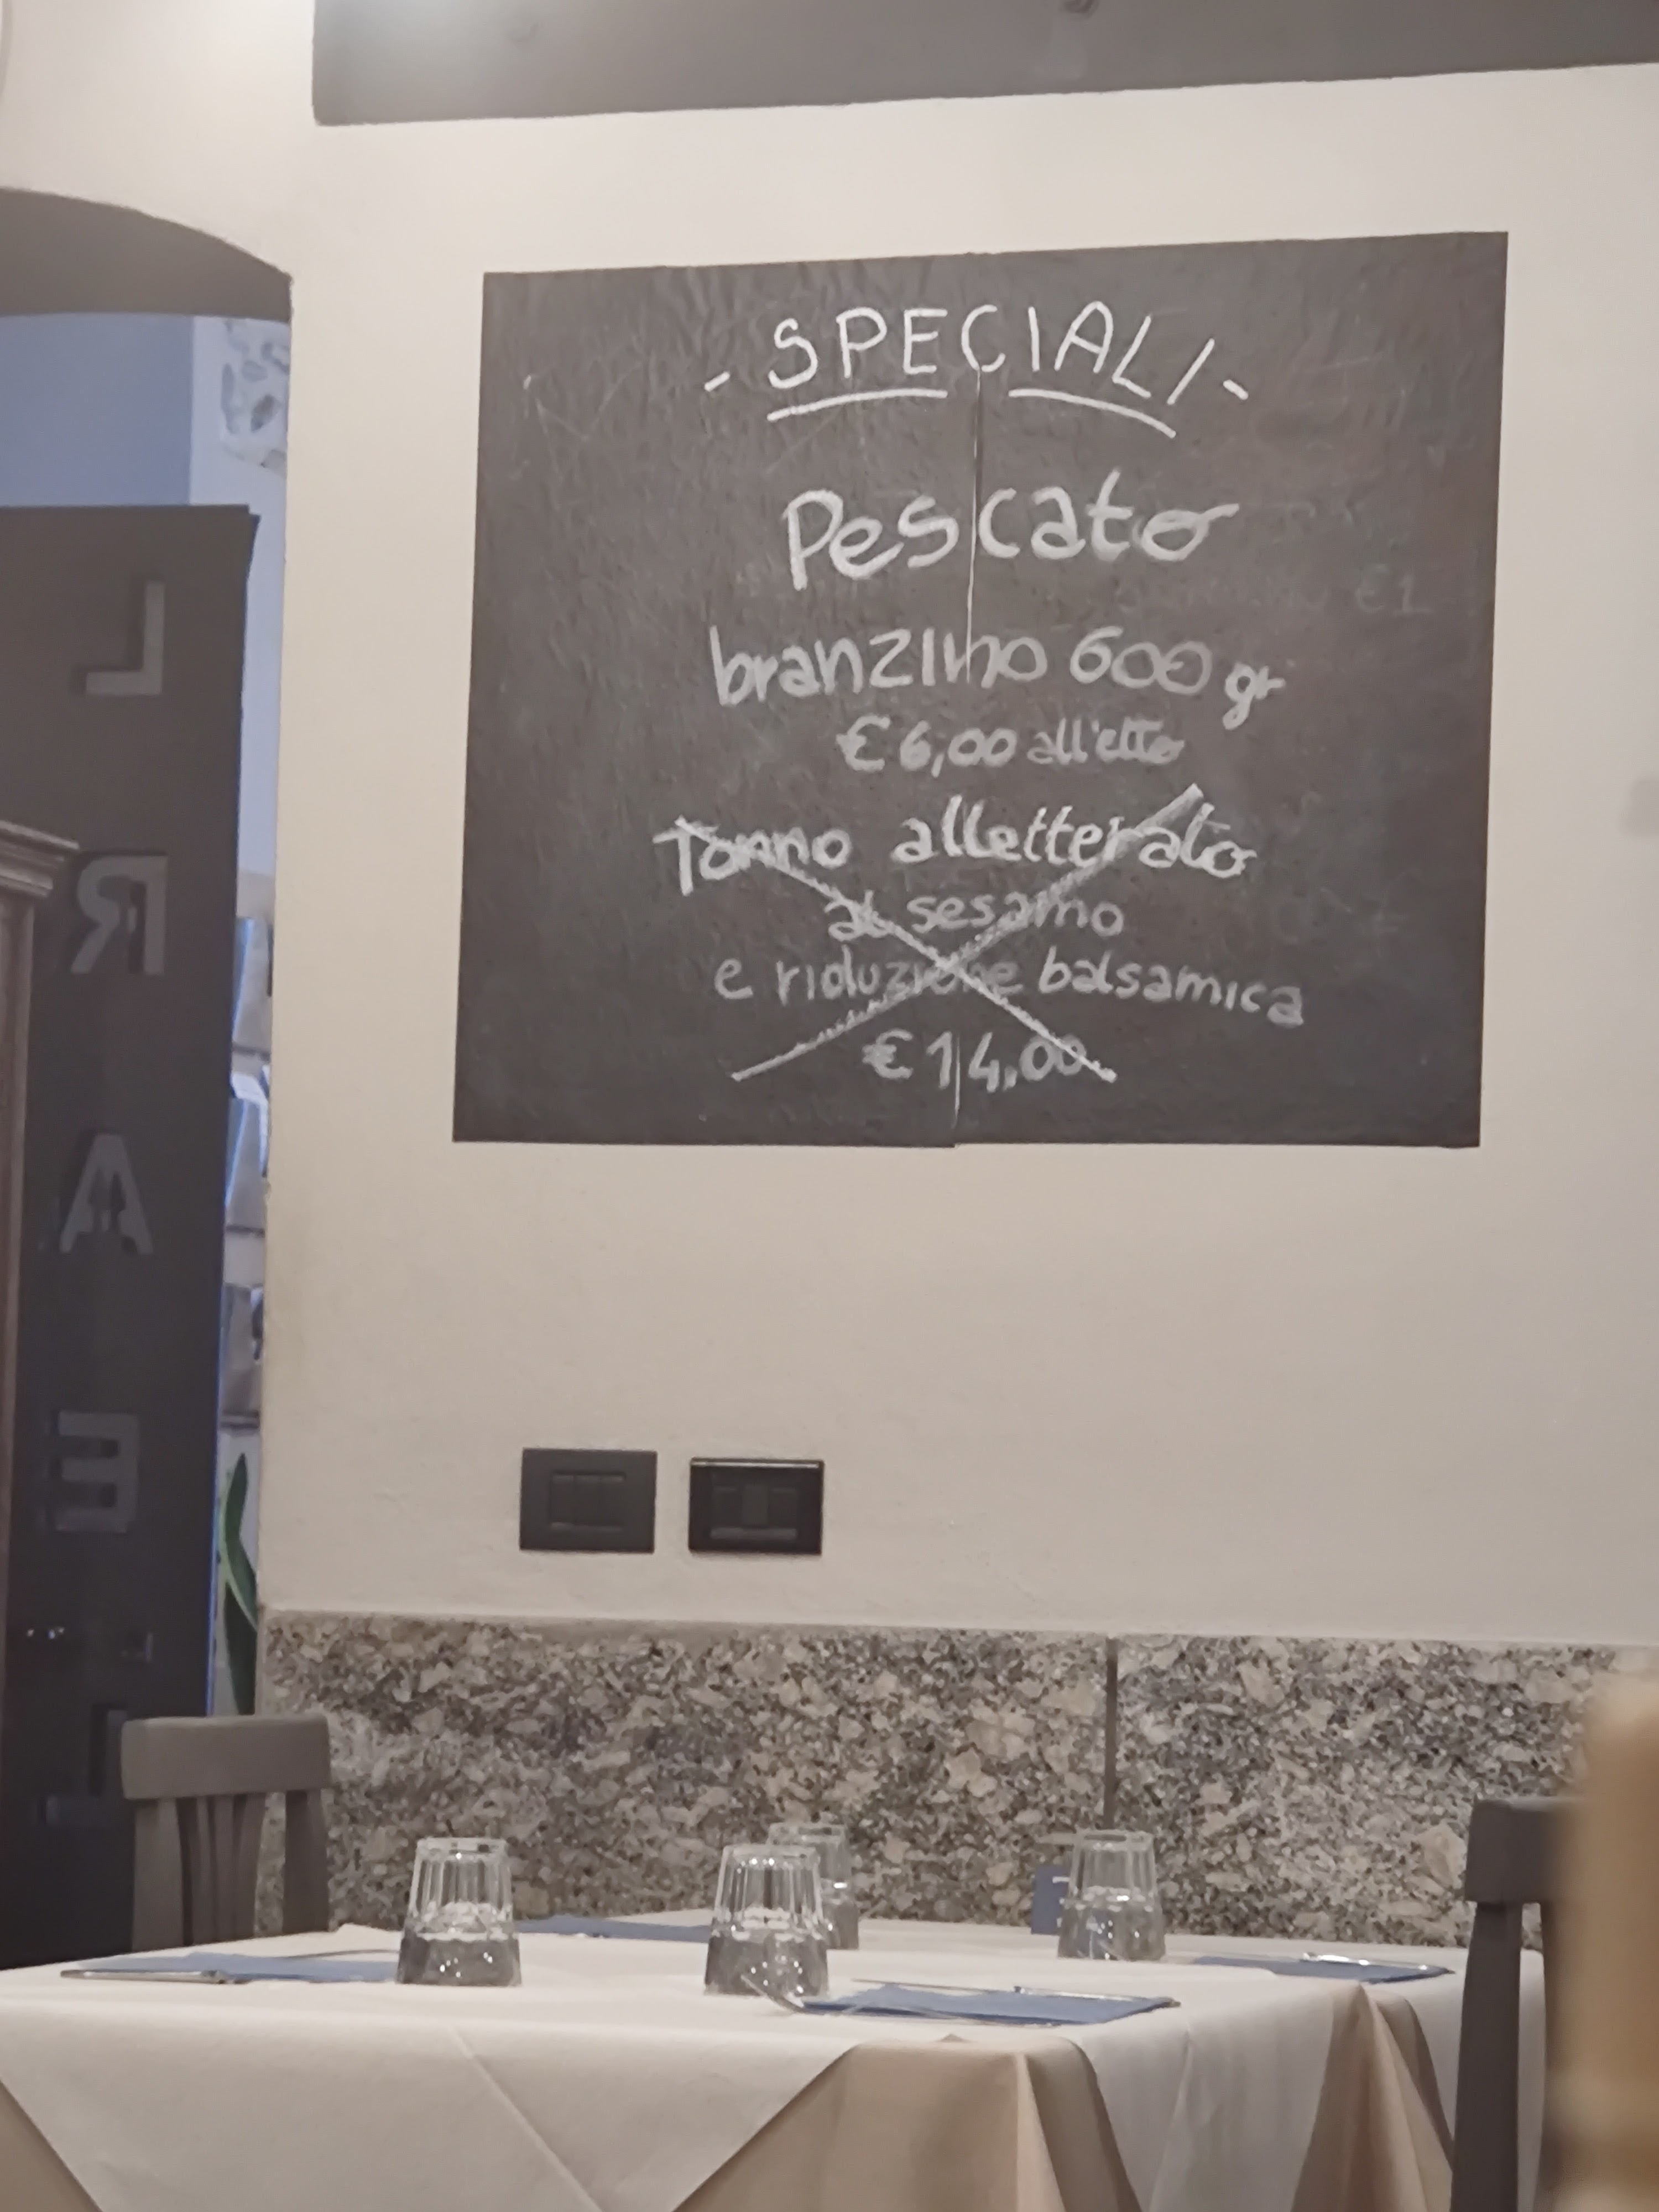 - SPECIALI -
Pescato
branzino 600 gr
€ 6,00 all'etto
Tonno alletterato
al sesamo
e riduzione balsamica
€ 14,00
L
R
A
E